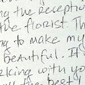 ng the reception
the florist Th
ng to make my
beautiful. It
rking with yo
the best